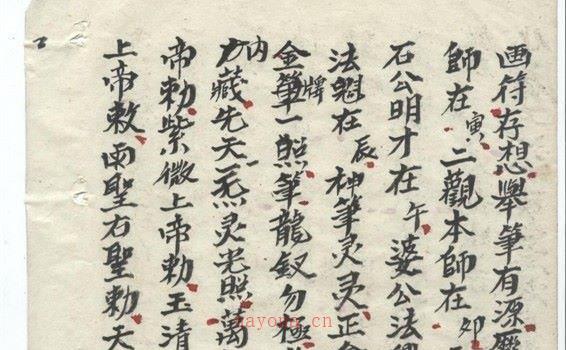 画符存想舉筆有源
師在寅二觀本師在卯
石公明才在午婆公法
法魁在辰神筆灵灵正
金牌筆一照筆龍釵勿極
内藏先天一炁灵光照萬
帝勅紫微上帝勅玉清
上帝敕雨聖右聖勅天